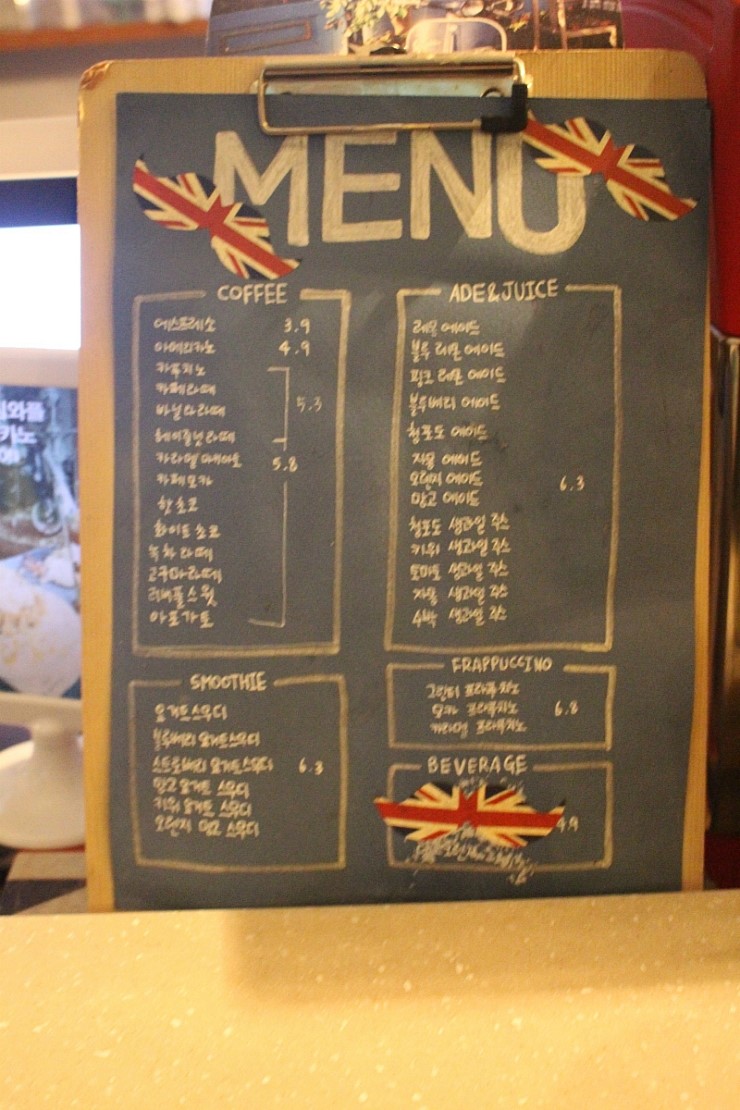 MENU
COFFEE
에스프레소 3.9
아메리카노 4.9
카푸치노
카페라떼
바닐라라떼 5.3
헤이즐넛라떼
카라멜마끼아또 5.8
카페모카
핫초코
화이트초코
녹차라떼
고구마라떼
리버풀스윗
아포가토
SMOOTHIE
요거트스무디
블루베리 요거트스무디
스트로베리 요거트스무디 6.3
망고 요거트 스무디
키위 요거트 스무디
오렌지 망고 스무디
ADE&JUICE
레몬 에이드
블루 레몬 에이드
핑크 레몬 에이드
블루베리 에이드
청포도 에이드
자몽 에이드
오렌지 에이드 6.3
망고 에이드
청포도 생과일 쥬스
키위 생과일 쥬스
토마토 생과일 쥬스
자몽 생과일 쥬스
수박 생과일 쥬스
FRAPPUCCINO
그린티 프라푸치노
모카 프라푸치노 6.8
카라멜 프라푸치노
BEVERAGE
4.9